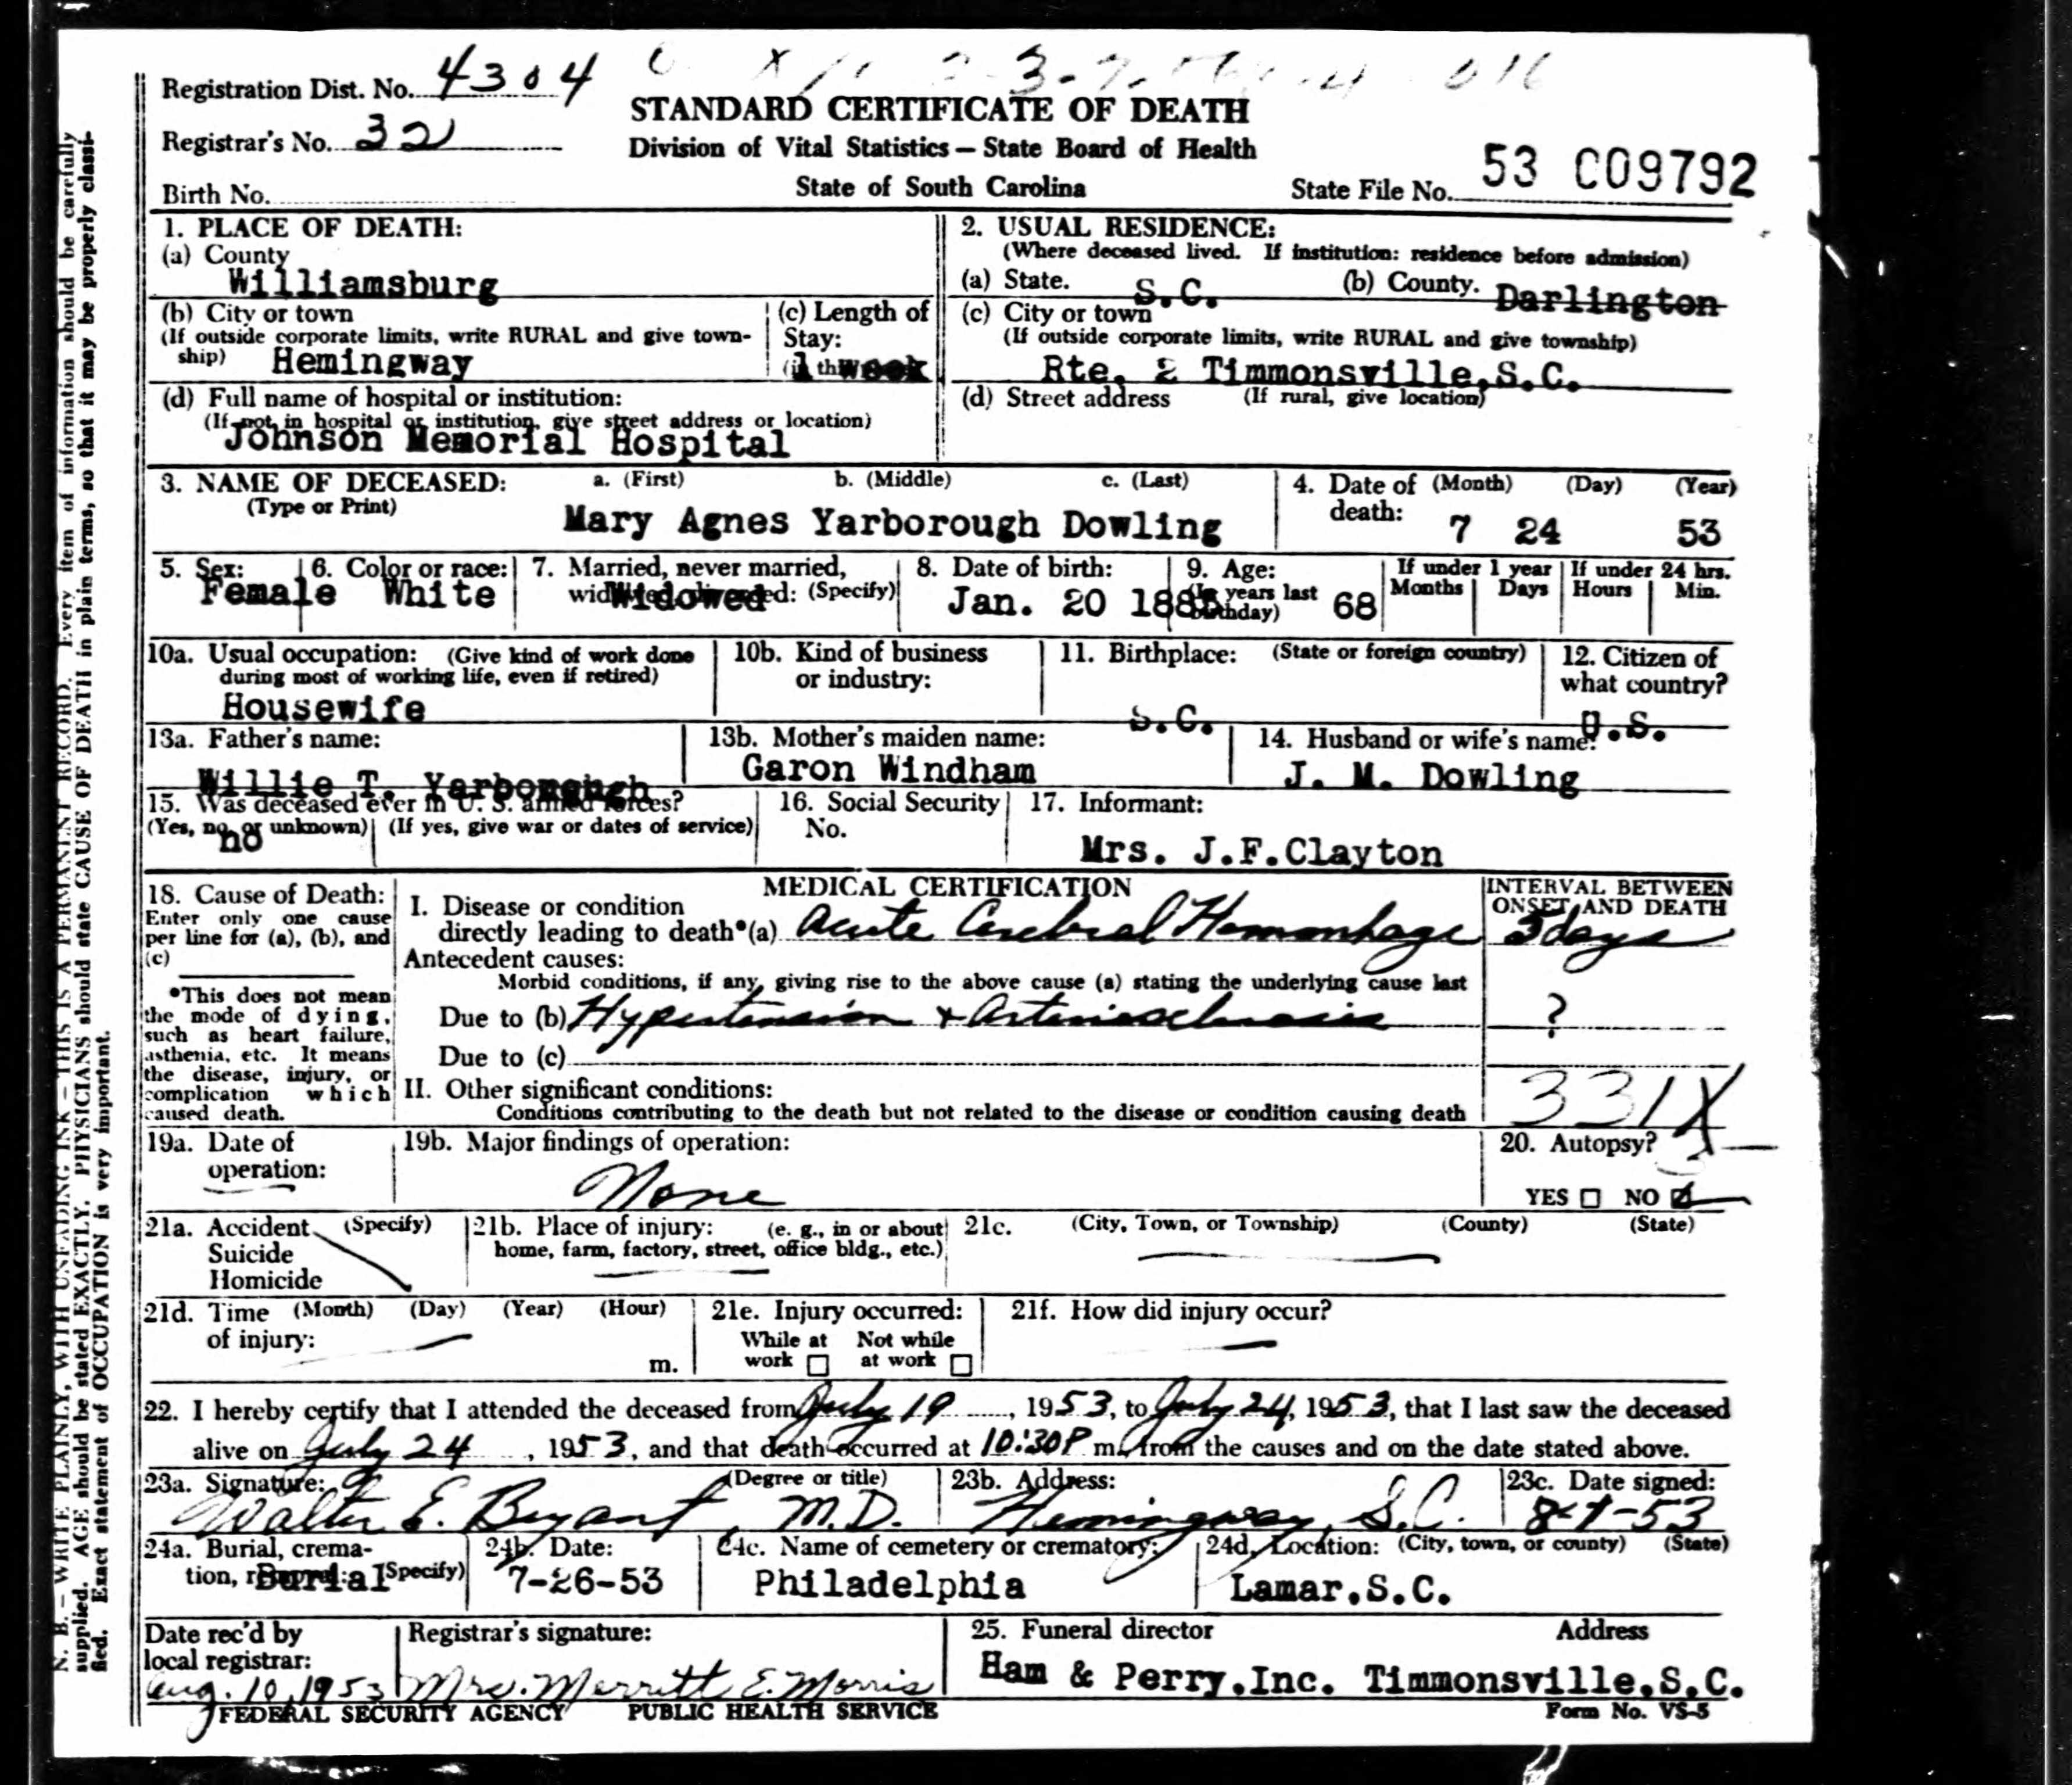 Registration Dist. No. 4304
STANDARD CERTIFICATE OF DEATH
Registrar's No. 32
Division of Vital Statistics — State Board of Health
Birth No.
State of South Carolina
State File No. 53 C09792
1. PLACE OF DEATH:
(a) County
Williamsburg
(b) City or town
(If outside corporate limits, write RURAL and give town-
ship) Hemingway
(c) Length of
Stay:
1 week
(d) Full name of hospital or institution:
(If not in hospital or institution, give street address or location)
Johnson Memorial Hospital
2. USUAL RESIDENCE:
(Where deceased lived. If institution: residence before admission)
(a) State. S.C. (b) County. Darlington
(c) City or town
(If outside corporate limits, write RURAL and give township)
Rte. 2 Timmonsville,S.C.
(d) Street address (If rural, give location)
3. NAME OF DECEASED: a. (First) b. (Middle) c. (Last)
(Type or Print)
Mary Agnes Yarborough Dowling
4. Date of (Month) (Day) (Year)
death: 7 24 53
5. Sex:
Female
6. Color or race:
White
7. Married, never married,
Widowed (Specify)
8. Date of birth:
Jan. 20 1885
9. Age:
(In years last
birthday) 68
If under 1 year
Months Days
If under 24 hrs.
Hours Min.
10a. Usual occupation: (Give kind of work done
during most of working life, even if retired)
Housewife
10b. Kind of business
or industry:
11. Birthplace: (State or foreign country)
S.C.
12. Citizen of
what country?
U.S.
13a. Father's name:
Willie T. Yarborough
13b. Mother's maiden name:
Garon Windham
14. Husband or wife's name:
J. M. Dowling
15. Was deceased ever in U. S. armed forces?
(Yes, no, or unknown) (If yes, give war or dates of service)
no
16. Social Security
No.
17. Informant:
Mrs. J.F.Clayton
18. Cause of Death:
Enter only one cause
per line for (a), (b), and
(c)
*This does not mean
the mode of dying,
such as heart failure,
asthenia, etc. It means
the disease, injury, or
complication which
caused death.
MEDICAL CERTIFICATION
I. Disease or condition
directly leading to death*(a) Acute Cerebral Hemorrhage
Antecedent causes:
Morbid conditions, if any, giving rise to the above cause (a) stating the underlying cause last
Due to (b) Hypertension + Arteriosclerosis
Due to (c)
II. Other significant conditions:
Conditions contributing to the death but not related to the disease or condition causing death
INTERVAL BETWEEN
ONSET AND DEATH
5 days
?
331X
19a. Date of
operation:
19b. Major findings of operation:
None
20. Autopsy?
YES NO
21a. Accident (Specify)
Suicide
Homicide
21b. Place of injury: (e. g., in or about
home, farm, factory, street, office bldg., etc.)
21c. (City, Town, or Township) (County) (State)
21d. Time (Month) (Day) (Year) (Hour)
of injury:
m.
21e. Injury occurred:
While at Not while
work at work
21f. How did injury occur?
22. I hereby certify that I attended the deceased from July 19, 1953, to July 24, 1953, that I last saw the deceased
alive on July 24, 1953, and that death occurred at 10:30P m., from the causes and on the date stated above.
23a. Signature: (Degree or title)
Walter E. Bryant, M.D.
23b. Address:
Hemingway, S.C.
23c. Date signed:
8-7-53
24a. Burial, crema-
tion, Burial (Specify)
24b. Date:
7-26-53
24c. Name of cemetery or crematory:
Philadelphia
24d. Location: (City, town, or county) (State)
Lamar,S.C.
Date rec'd by
local registrar:
Aug. 10, 1953
Registrar's signature:
Mrs. Merritt E. Morris
25. Funeral director Address
Ham & Perry,Inc. Timmonsville,S.C.
FEDERAL SECURITY AGENCY PUBLIC HEALTH SERVICE
Form No. VS-5
N. B. — WRITE PLAINLY, WITH UNFADING INK — THIS IS A PERMANENT RECORD. Every item of information should be carefully
supplied. AGE should be stated EXACTLY. PHYSICIANS should state CAUSE OF DEATH in plain terms, so that it may be properly classi-
fied. Exact statement of OCCUPATION is very important.